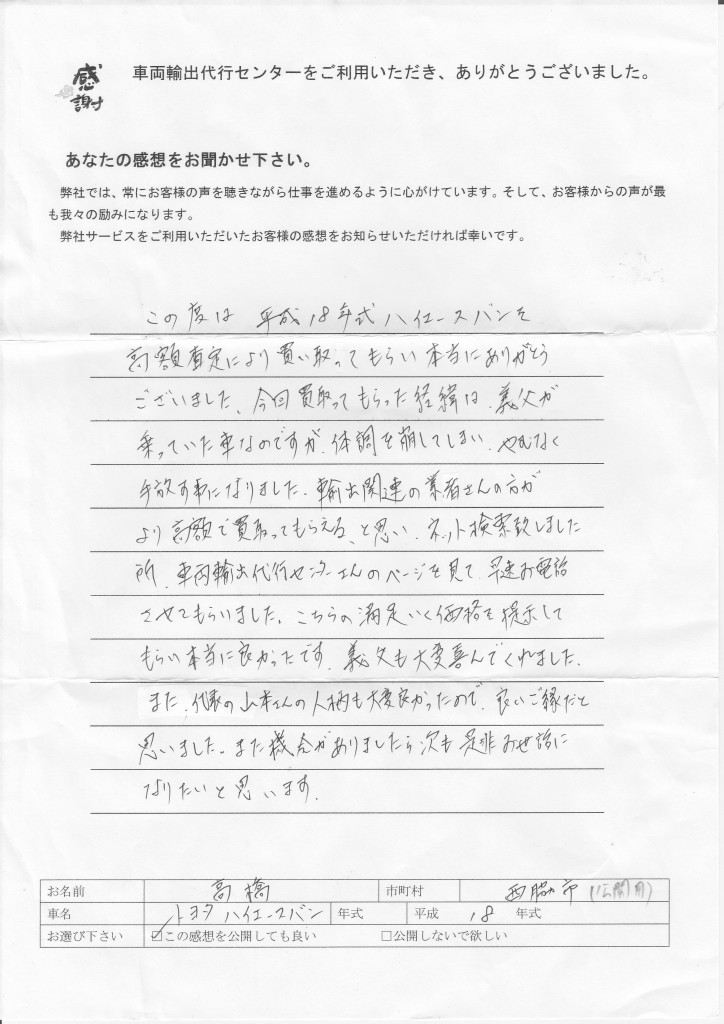 感謝
車両輸出代行センターをご利用いただき、ありがとうございました。
あなたの感想をお聞かせ下さい。
弊社では、常にお客様の声を聴きながら仕事を進めるように心がけています。そして、お客様からの声が最
も我々の励みになります。
弊社サービスをご利用いただいたお客様の感想をお知らせいただければ幸いです。
この度は 平成18年式ハイエースバンを
高額査定により買い取ってもらい本当にありがとう
ございました、今回買取ってもらった経緯は、義父が
乗っていた車なのですが、体調を崩してしまい、やむなく
手放す事になりました。輸出関連の業者さんの方が
より高額で買取ってもらえる、と思い、ネット検索致しました
所、車両輸出代行センターさんのページを見て、早速お電話
させてもらいました。こちらの満足いく価格を提示して
もらい本当に良かったです。義父も大変喜んでくれました。
また、代表の山本さんの人柄も大変良かったので、良いご縁だと
思いました。また機会がありましたら次も是非お世話に
なりたいと思います。
お名前 高橋 市町村 西脇市 (公開用)
車名 トヨタ ハイエースバン 年式 平成 18 年式
お選び下さい ☑この感想を公開しても良い □公開しないで欲しい